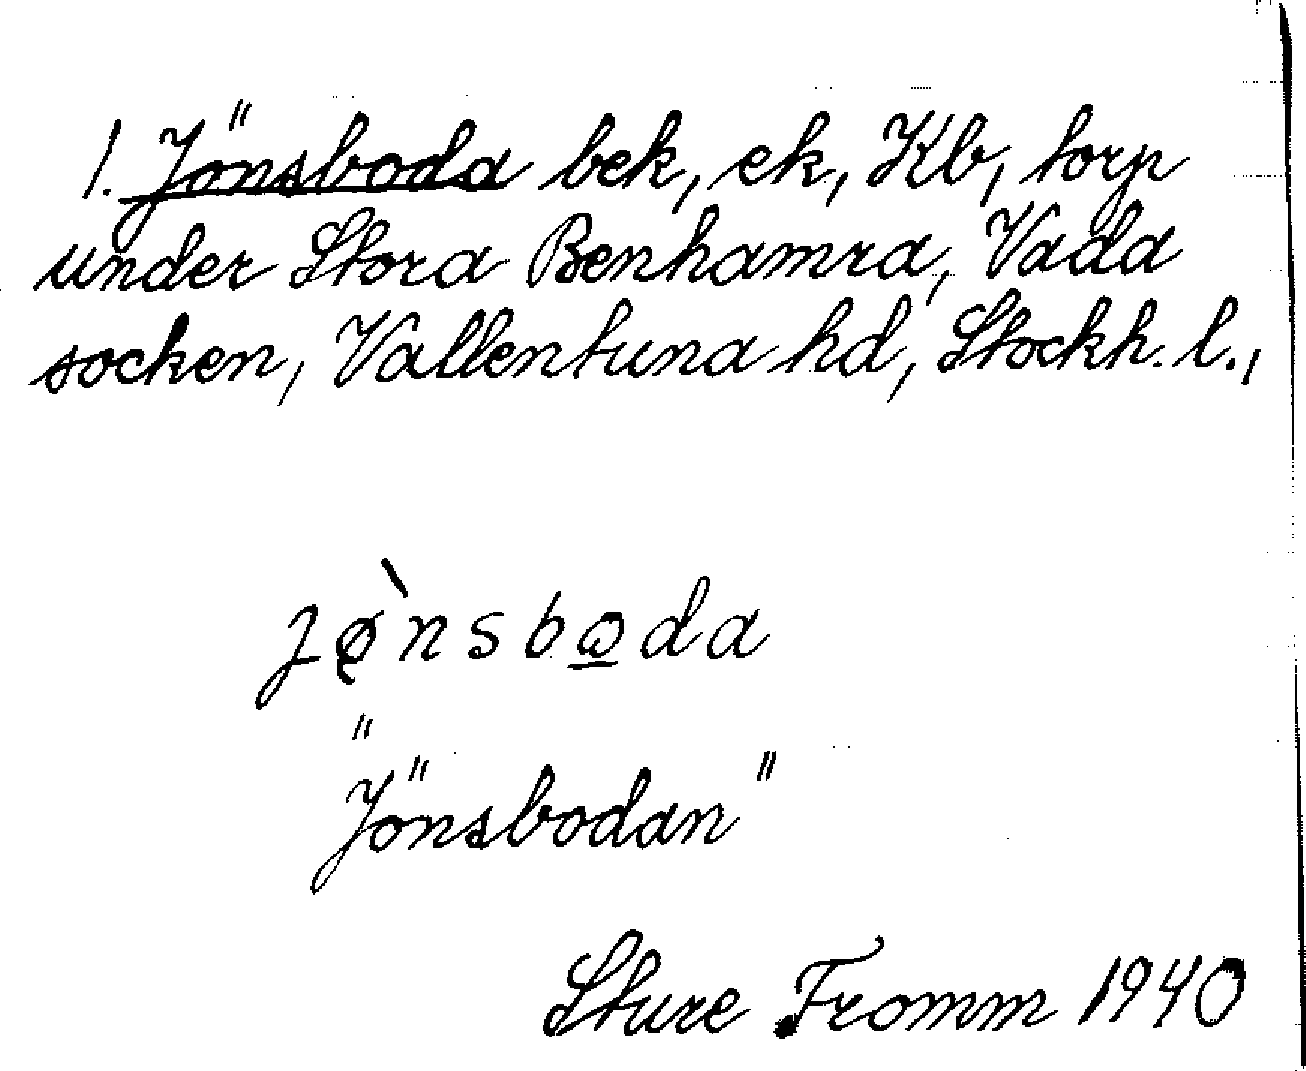 1. Jönsboda bek, ek, Kb, torp
under Stora Benhamra, Vada
socken, Vallentuna hd, Stockh. l.,
jø̨̀nsbω̲da
"Jönsbodan"
Sture Fromm 1940